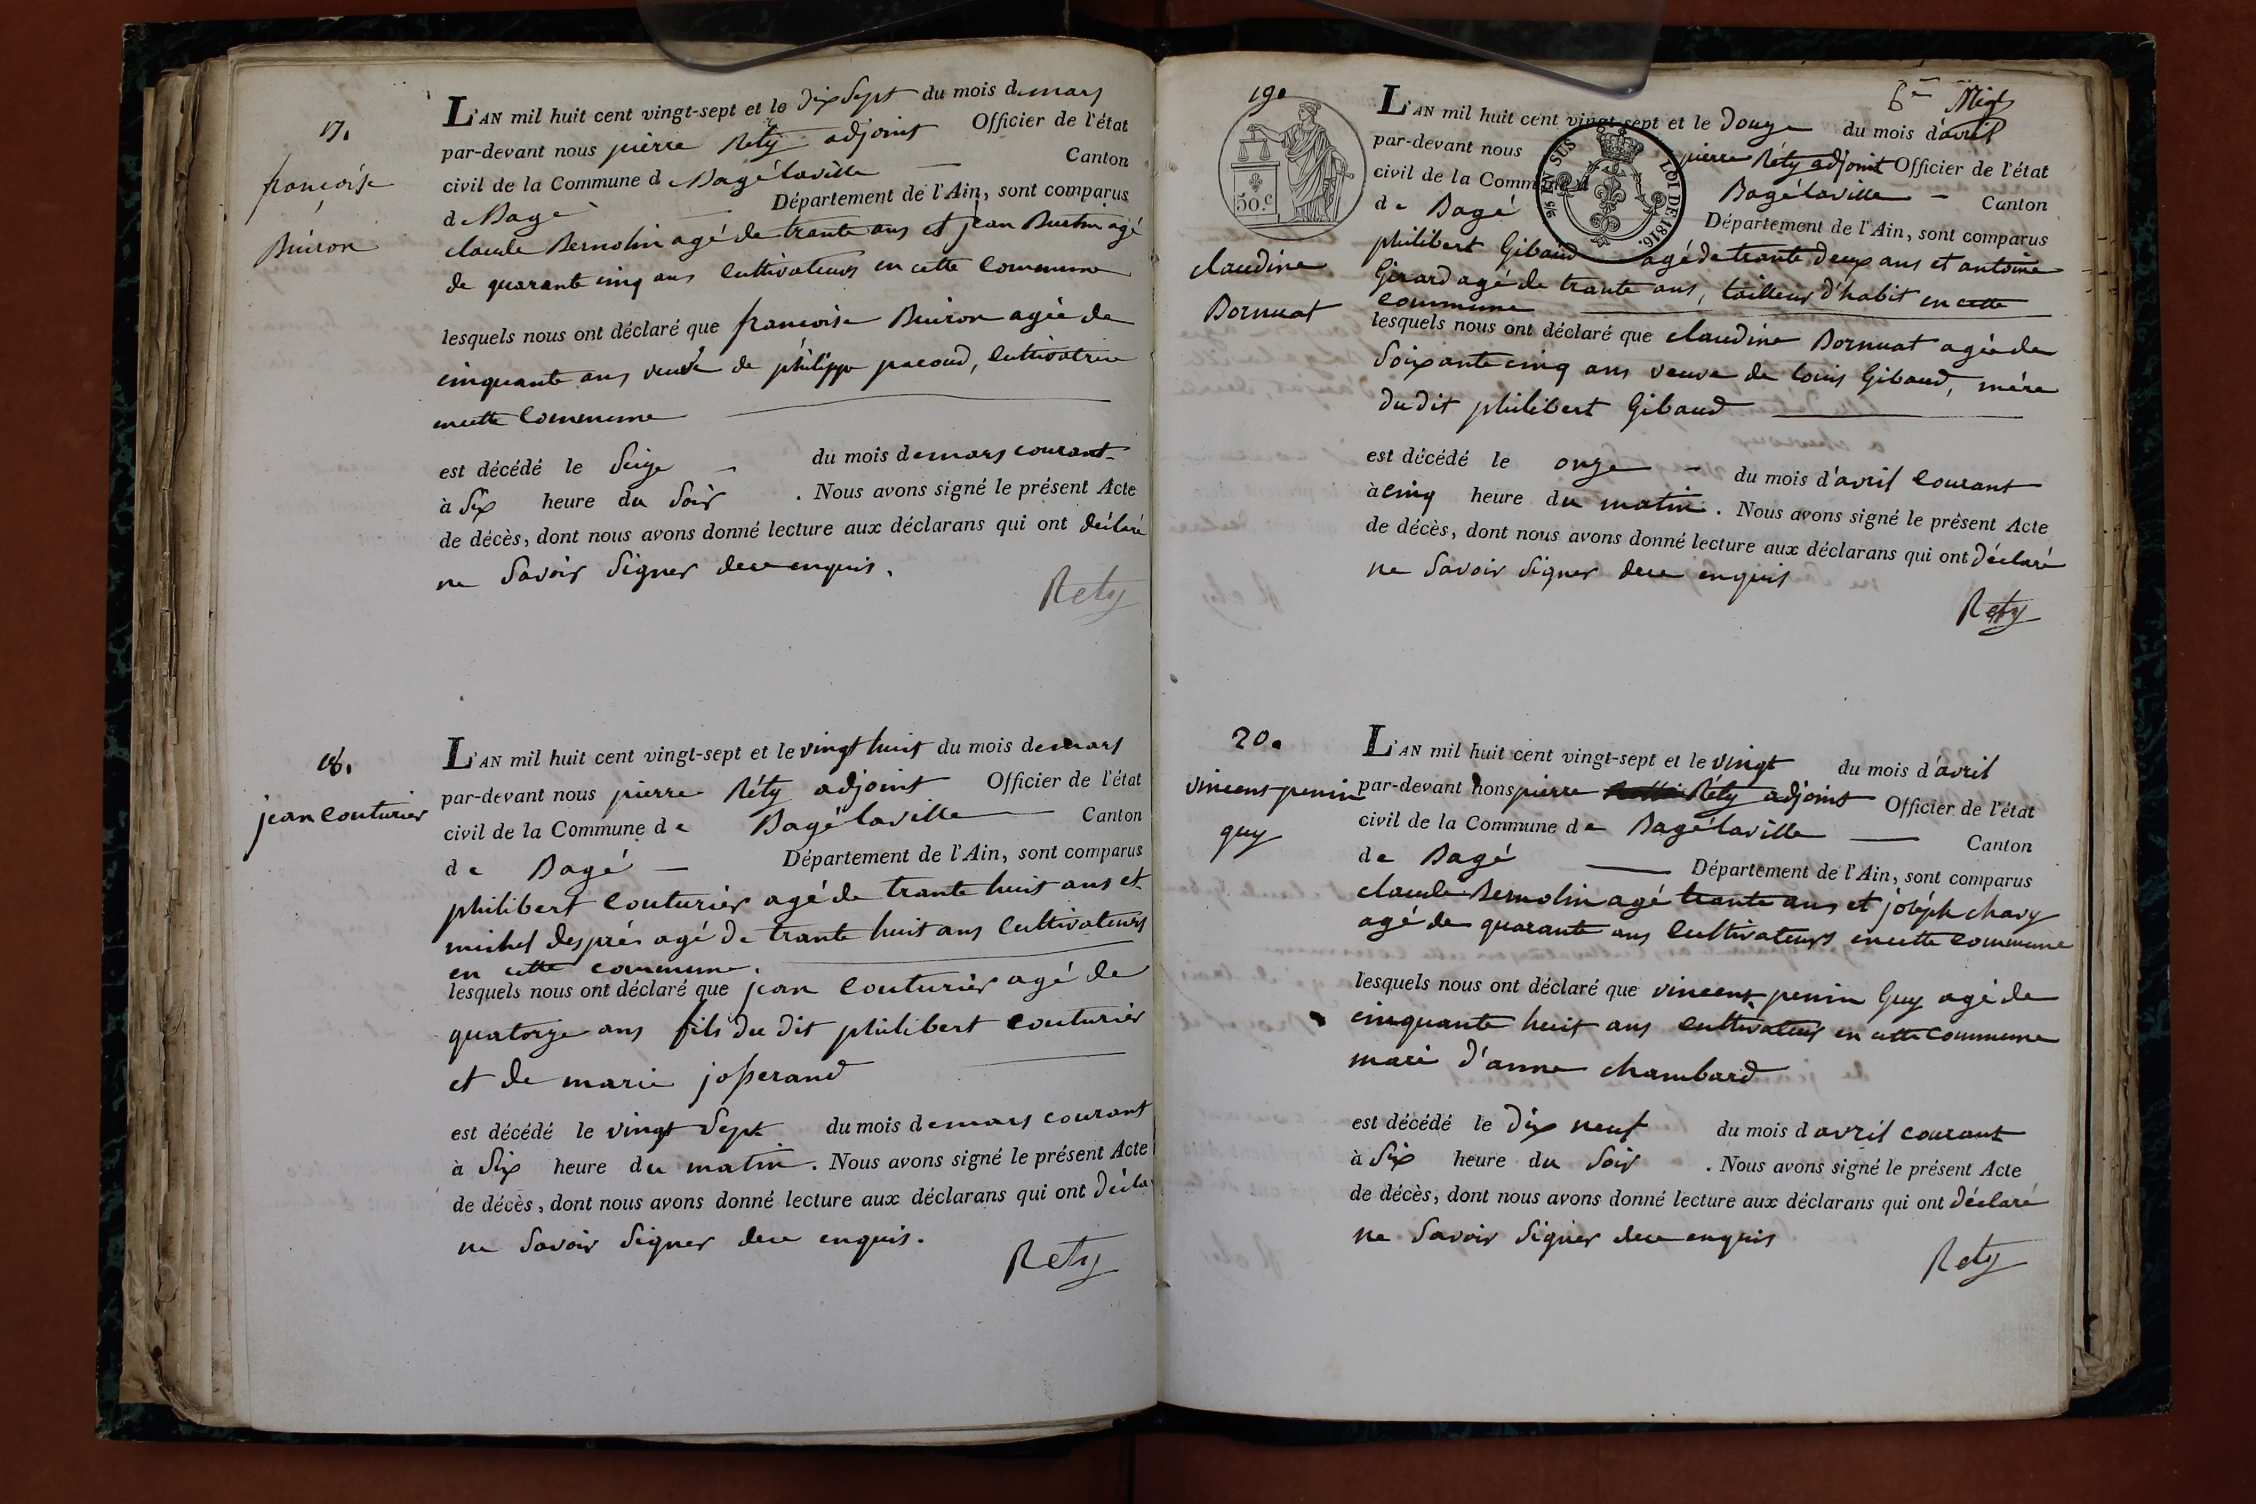 17.
françoise
Buiron
L'AN mil huit cent vingt-sept et le dix sept du mois de mars
par-devant nous pierre Réty adjoint Officier de l'état
civil de la Commune de Bagélaville Canton
de Bagé Département de l'Ain, sont comparus
claude Bernolin agé de trante ans et jean Burtin agé
de quarante cinq ans cultivateurs en cette commune
lesquels nous ont déclaré que françoise Buiron agée de
cinquante ans veuve de philippe pacoud, cultivatrice
en cette commune
est décédé le seize du mois de mars courant
à six heure du soir . Nous avons signé le présent Acte
de décès, dont nous avons donné lecture aux déclarans qui ont déclaré
ne savoir signer de ce enquis.
Rety
18.
jean couturier
L'AN mil huit cent vingt-sept et le vingt huit du mois de mars
par-devant nous pierre Réty adjoint Officier de l'état
civil de la Commune de Bagélaville Canton
de Bagé Département de l'Ain, sont comparus
philibert couturier agé de trante huit ans et
michel després agé de trante huit ans cultivateurs
en cette commune.
lesquels nous ont déclaré que jean couturier agé de
quatorze ans fils du dit philibert couturier
et de marie josserand
est décédé le vingt sept du mois de mars courant
à six heure du matin . Nous avons signé le présent Acte
de décès, dont nous avons donné lecture aux déclarans qui ont décla
ne savoir signer de ce enquis.
Rety
19.
50.c
EN SUS
LOI DE 1816.
claudine
Bornuat
L'AN mil huit cent vingt-sept et le douze du mois d'avril
par-devant nous pierre Réty adjoint Officier de l'état
civil de la Commune d Bagélaville Canton
de Bagé Département de l'Ain, sont comparus
philibert Gibaud agé de trante deux ans et antoine
Girard agé de trante ans, tailleur d'habit en cette
commune
lesquels nous ont déclaré que claudine Bornuat agée de
soixante cinq ans veuve de louis Gibaud, mére
du dit philibert Gibaud
est décédé le onze du mois d'avril courant
à cinq heure du matin . Nous avons signé le présent Acte
de décès, dont nous avons donné lecture aux déclarans qui ont déclaré
ne savoir signer de ce enquis
Rety
20.
vincent penin
guy
L'AN mil huit cent vingt-sept et le vingt du mois d'avril
par-devant nous pierre Réty adjoint Officier de l'état
civil de la Commune de Bagélaville Canton
de Bagé Département de l'Ain, sont comparus
claude Bernolin agé trante ans et joséph chavy
agé de quarante ans cultivateurs en cette commune
lesquels nous ont déclaré que vincent penin Guy agé de
cinquante huit ans cultivateur en cette commune
mari d'anne chambard
est décédé le dix neuf du mois d avril courant
à six heure du soir . Nous avons signé le présent Acte
de décès, dont nous avons donné lecture aux déclarans qui ont déclaré
ne savoir signer de ce enquis
Rety